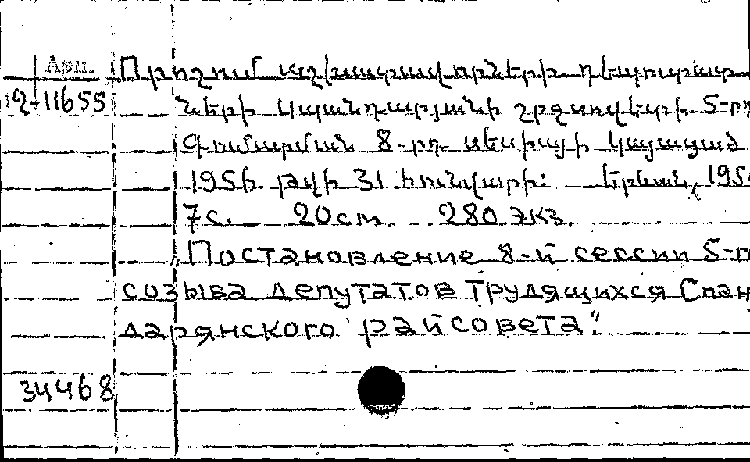 Арм.
Որոշում աշխատավորների դեպուտատ
12-11655
ների Սպանդարյանի շրջսովետի 5-րդ
գումարման 8-րդ սեսիայի կայացած
1956 թվի 31 հունվարի: Երևան, 195
7с. 20cm. 280 экз.
Постановление 8-й сессии 5-г
созыва депутатов трудящихся Спан
дарянского райсовета"
34468